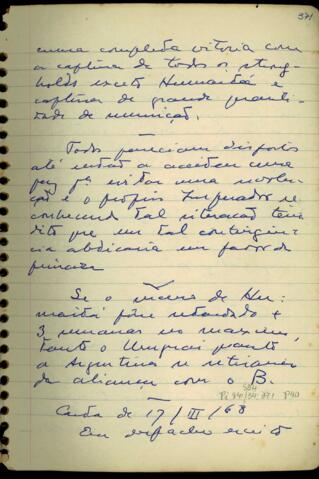 371
uma completa vitoria com
a captura de todos os strong-
holds exceto Humaitá e
captura de grande quanti-
dade de munição.
Todos pareciam dispostos
até então a aceitar uma
paz pª evitar uma revolu-
ção e o próprio Imperador re-
conhecendo tal situação teria
dito que em tal contingen-
cia abdicaria em favor da
princeza
Se o cerco de Hu-
maitá fôr retardado +
3 semanas no maximo,
tanto o Uruguai quanto
a Argentina se retirarão
da aliança com o B.
584
Carta de 17/III/68
Em despacho